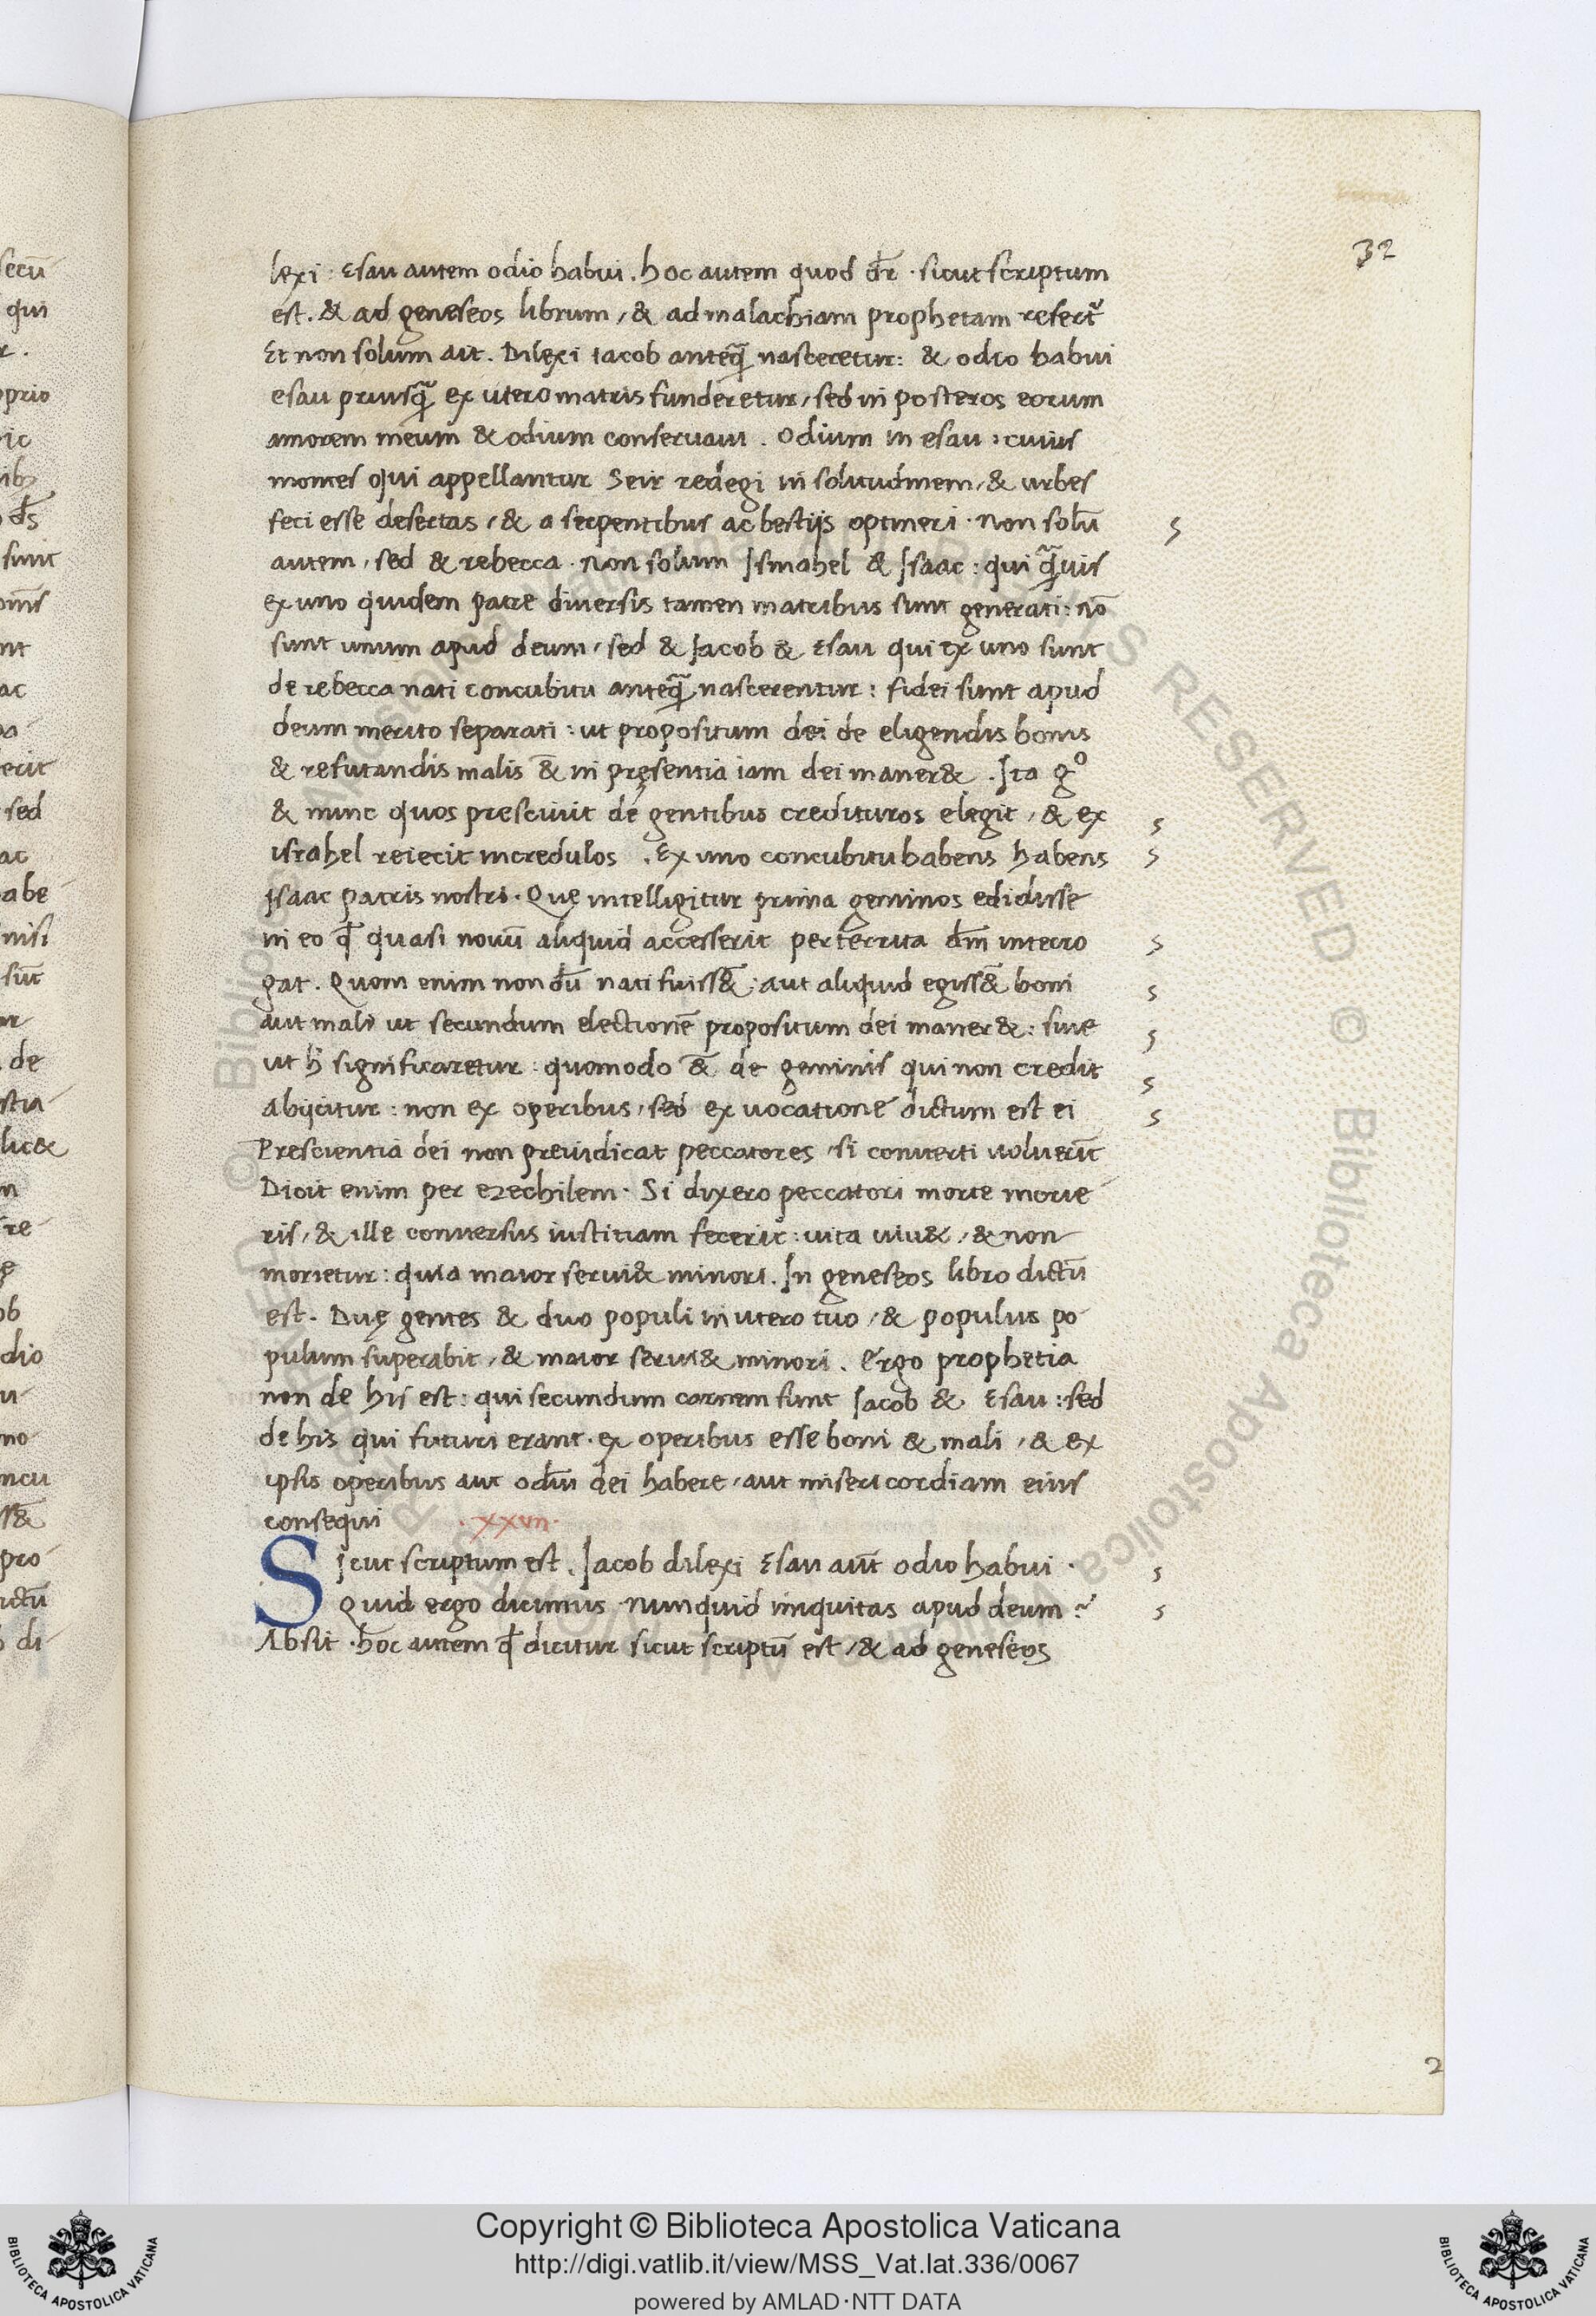 32
lexi : Esau autem odio habui . hoc autem quod dr̄ . sicut scriptum
est . & ad geneseos librum , & ad malachiam prophetam refert᷑
Et non solum ait . Dilexi iacob anteq̄ nasceretur : & odio habui
esau priusq̄ ex utero matris funderetur , sed in posteros eorum
amorem meum & odium conseruaui . Odium in esau : cuius
montes qui appellantur Seir redegi in solitudinem , & urbes
feci esse desertas , & a serpentibus ac bestijs optineri . Non solū
autem , sed & rebecca . Non solum Ismahel & Isaac : qui q̄uis
ex uno quidem patre diuersis tamen matribus sunt generati : nō
sunt unum apud deum , sed & Iacob & Esau qui ex uno sunt
de rebecca nati concubitu anteq̄ nascerentur : fidei sunt apud
deum merito separati : ut propositum dei de eligendis bonis
& refutandis malis &̄ in pręsentia iam dei maner& . Ita gº
& nunc quos presciuit de gentibus credituros elegit , & ex
israhel reiecit incredulos . Ex uno concubitu habens habens
Isaac patris nostri . Quę intelligitur prima geminos edidisse
in eo q̄ quasi nouū aliquid accesserit perterrita dn̄m interro
gat . Quom enim non dū nati fuiss&̄ . aut aliquid egiss&̄ boni
aut mali ut secundum electionē propositum dei maner& : siue
ut h̄ significaretur : quomodo &̄ de geminis qui non credit
abijcitur : non ex operibus , sed ex uocatione dictum est ei
Prescientia dei non preiudicat peccatores , si conuerti uoluerīt
Dicit enim per ezechilem . Si dixero peccatori morte morie
ris , & ille conuersus iustitiam fecerit : uita uiu& , & non
morietur : quia maior serui& minori . In geneseos libro dictū
est . Duę gentes & duo populi in utero tuo , & populus po
pulum superabit , & maior serui& minori . Ergo prophetia
non de his est : qui secundum carnem sunt Iacob & Esau : sed
de his qui futuri erant . ex operibus esse boni & mali , & ex
ipsis operibus aut odiū dei habere , aut misericordiam eius
consequi . xxvii .
Sicut scriptum est . Iacob dilexi Esau aut̄ odio habui .
Quid ergo dicimus nunquid iniquitas apud deum ?
Absit . hoc autem q̄ dicitur sicut scriptū est , & ad geneseos
2
Copyright © Biblioteca Apostolica Vaticana
http://digi.vatlib.it/view/MSS_Vat.lat.336/0067
powered by AMLAD·NTT DATA